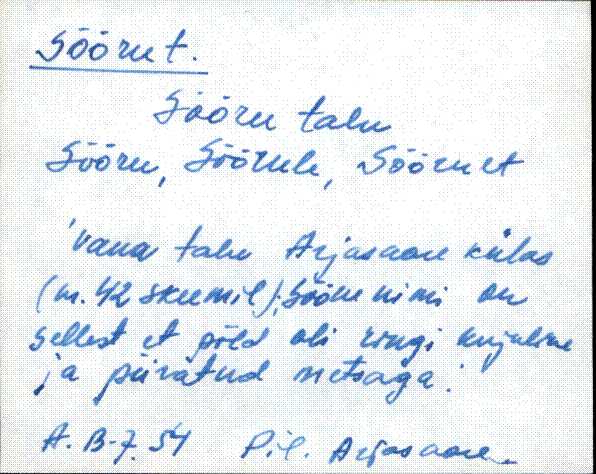 Sõõru t.
Sõõru talu
Sõõru, Sõõrule, Sõõruet
'vana talu Arjasaare külas
(m. 42 skeemil); Sõõru nimi on
sellest et põld oli ringi kujuline
ja piiratud metsaga.'
A. B-7. 54 Pil. Arjasaare